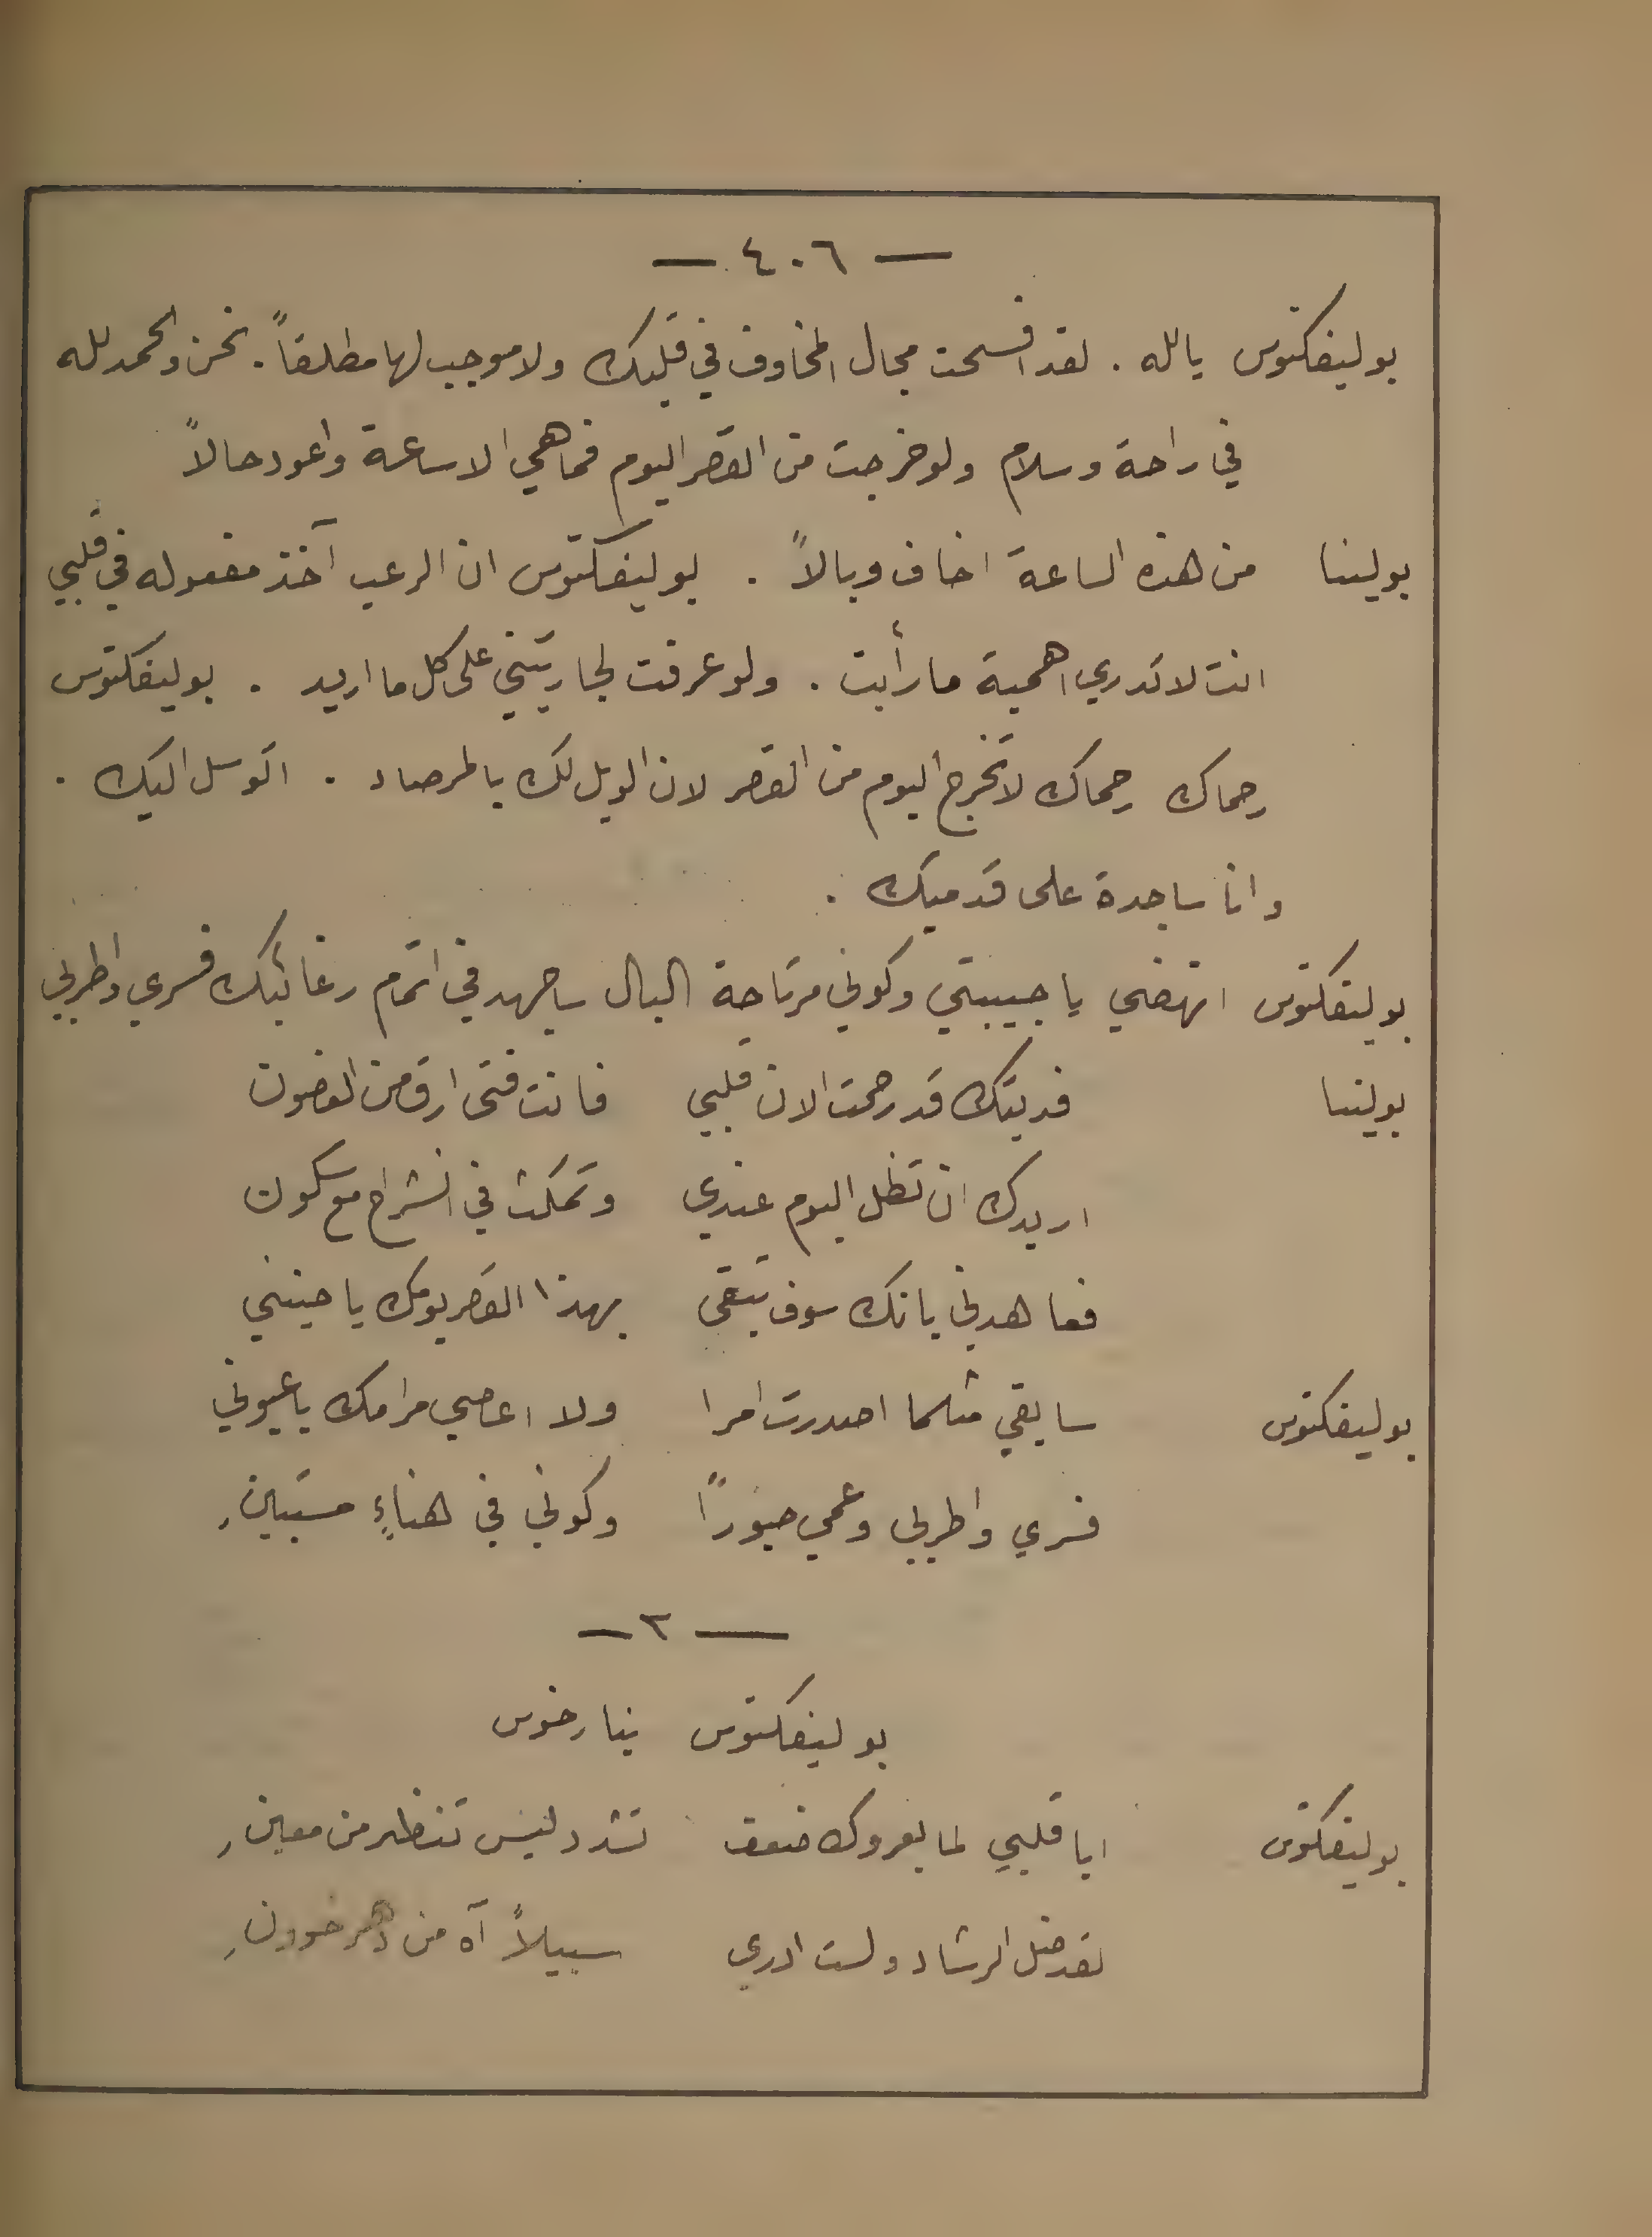 — ٤٠٦ —
بوليفكتوس يالله . لقد افسحت مجال المخاوف في قلبك ولا موجب لها مطلقاً . نحن والحمد لله
في راحة وسلام ولو خرجت من القصر اليوم فما هي الا ساعة واعود حالاً
بولينا من هذه الساعة اخاف وبالاً . بوليفكتوس ان الرعب آخذ مفعوله في قلبي
انت لا تدري اهمية ما رأيت . ولو عرفت لجاريتني على كل ما اريد . بوليفكتوس
رحماك رحماك لا تخرج اليوم من القصر لان الويل لك بالمرصاد . اتوسل اليك .
وانا ساجدة على قدميك .
بوليفكتوس انهضي يا حبيبتي وكوني مرتاحة البال ساجهد في اتمام رغائبك فسري واطربي
بولينا فديتك قد رحمت الان قلبي فانت فتى ارق من الغصون
اريدك ان تظل اليوم عندي وتمكث في انشراح مع سكون
فعاهدني بانك سوف تبقى بهذا القصر يومك يا حنيني
بوليفكتوس سابقي مثلما اصدرت امرا ولا اعاصي مرامك يا عيوني
فسري واطربي وعمي حبوراً وكوني في هناءٍ مستبينِ
— ٣ —
بوليفكتوس نيارخوس
بوليفكتوس ايا قلبي لما يعروك ضعف تشدد ليس تنظر من معينِ
لقد ضل الرشاد ولست ادري سبيلاً آه من دهر خوونِ